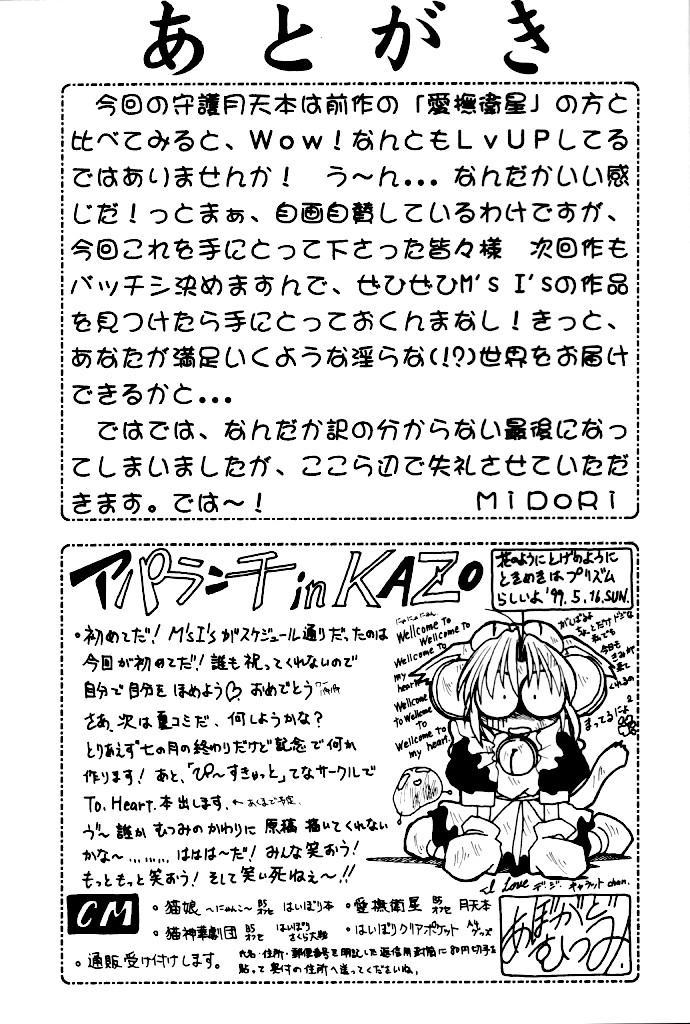 あとがき
今回の守護月天本は前作の「愛撫衛星」の方と
比べてみると、Wow！なんともLvUPしてる
ではありませんか！　う～ん...なんだかいい感
じだ！っとまぁ、自画自賛しているわけですが、
今回これを手にとって下さった皆々様　次回作も
バッチシ決めますんで、ぜひぜひM's I'sの作品
を見つけたら手にとっておくんまなし！きっと、
あなたが満足いくような淫らな(!?)世界をお届け
できるかと...
ではでは、なんだか訳の分からない最後になっ
てしまいましたが、ここら辺で失礼させていただ
きます。では～！　MiDoRi
アパランチ in KAZO
花のようにとげのように
ときめきはプリズム
らしいよ '99. 5. 16. SUN.
・初めてだ! M'sI'sがスケジュール通りだったのは
今回が初めてだ! 誰も祝ってくれないので
自分で自分をほめよう♡ おめでとう
さあ、次は夏コミだ、何しようかな?
とりあえず七の月の終わりだけど記念で何か
作ります! あと、「ぴ～すきゅっと」てなサークルで
To. Heart. 本出します. ←あくまで予定.
う～ 誰か むつみのかわりに 原稿 描いてくれない
かな～ ......... ははは～だ! みんな笑おう!
もっともっと笑おう! そして笑い死ねぇ～!!
Wellcome To
Wellcome To
Wellcome To
my heart
Wellcome To
to Wellcome To
Wellcome To
my heart.
がんばるよ
ちょとだけ
今日も
まってるにょ
I Love デ・ジ・キャラット chan.
CM
・猫娘 ～にゃんこ～ B5 オフセ はいぽり本
・愛撫衛星 B5 オフセ 月天本
・猫神華劇団 B5 オフセ はいぽり さくら大戦
・はいぽりクリアポケット A4 グッズ
・通販受け付けします。
氏名・住所・郵便番号を明記した返信用封筒に80円切手を
貼って奥付の住所へ送ってくださいね。
あぼがど
むつみ